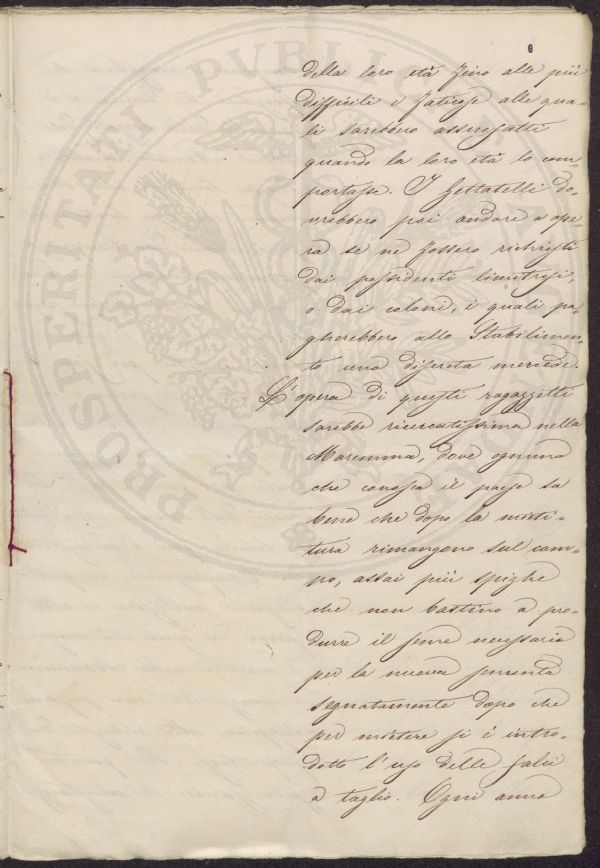 PROSPERITATI PVBLICAE
6
della loro età fino alle più
difficili e faticose alle qua-
li sarebbero assuefatti
quando la loro età lo com-
portasse. I Gettatelli do-
vrebbero poi andare a ope-
ra se ne fossero richiesti
dai possidenti limitrofi,
o dai coloni, i quali pa-
gherebbero allo Stabilimen-
to una discreta mercede.
L'opera di questi ragazzetti
sarebbe ricercatissima nella
Maremma, dove ognuno
che conosca il paese sa
bene che dopo la mieti-
tura rimangono sul cam-
po, assai più spighe
che non bastino a pro-
durre il seme necessario
per la nuova sementa
segnatamente dopo che
per mietere si è intro-
dotto l'uso delle falci
a taglio. Ogni anno